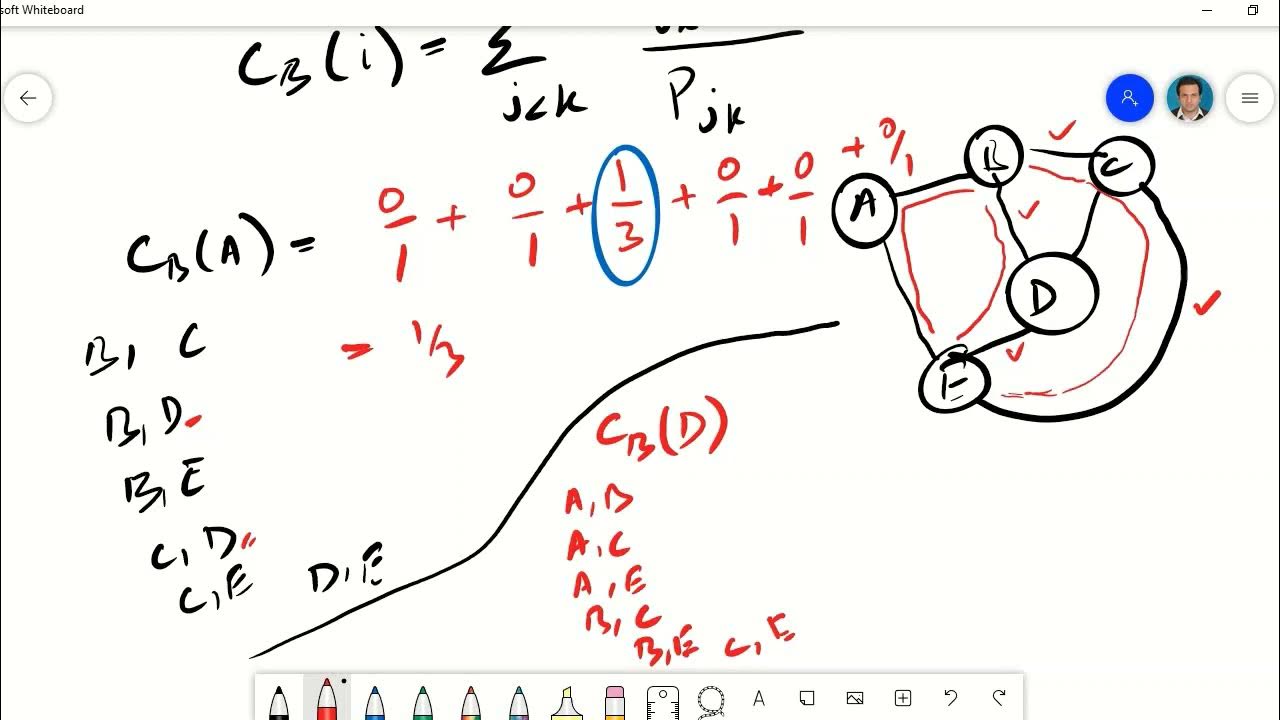 soft Whiteboard
C_B(i) = Σ
j<k P_jk
C_B(A) = 0/1 + 0/1 + 1/3 + 0/1 + 0/1 + 0/1
= 1/3
B, C
B, D
B, E
C, D
C, E D, E
C_B(D)
A, B
A, C
A, E
B, C
B, E C, E
A
B
C
D
E
A